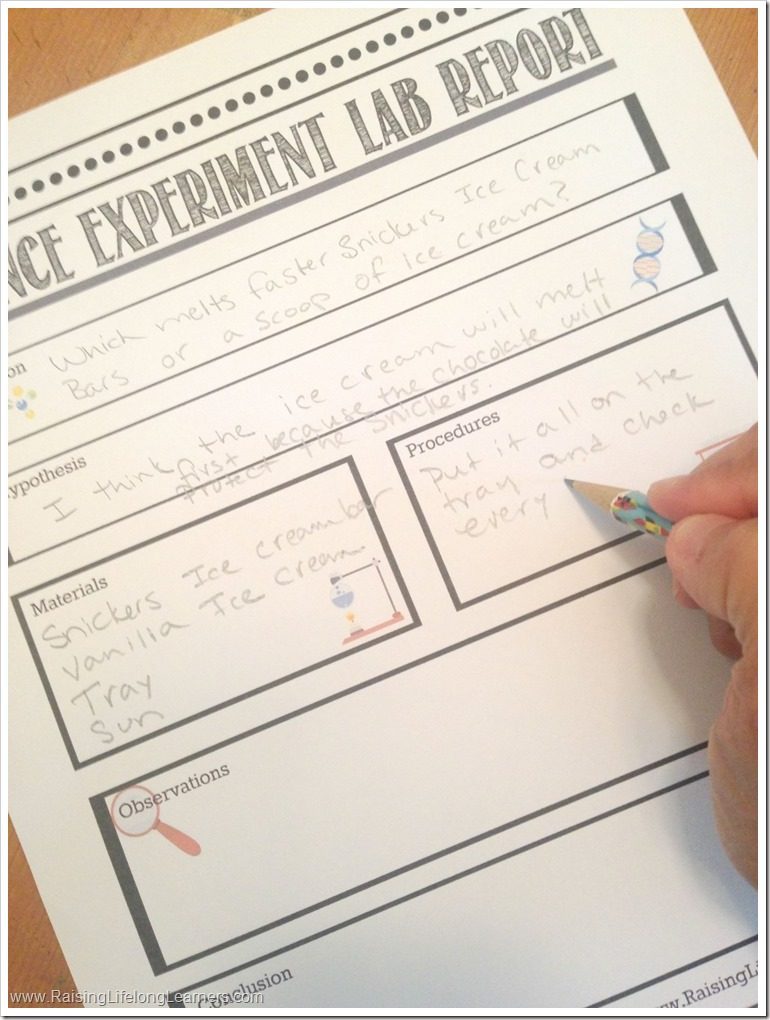 NCE EXPERIMENT LAB REPORT
on
Which melts faster Snickers Ice Cream
Bars or a scoop of Ice cream?
ypothesis
I think the ice cream will melt
first because the chocolate will
protect the Snickers.
Procedures
Put it all on the
tray and check
every
Materials
Snickers Ice cream bar
Vanilla Ice cream.
Tray
Sun
Observations
Conclusion
www.RaisingLifelongLearners.com
www.RaisingLi